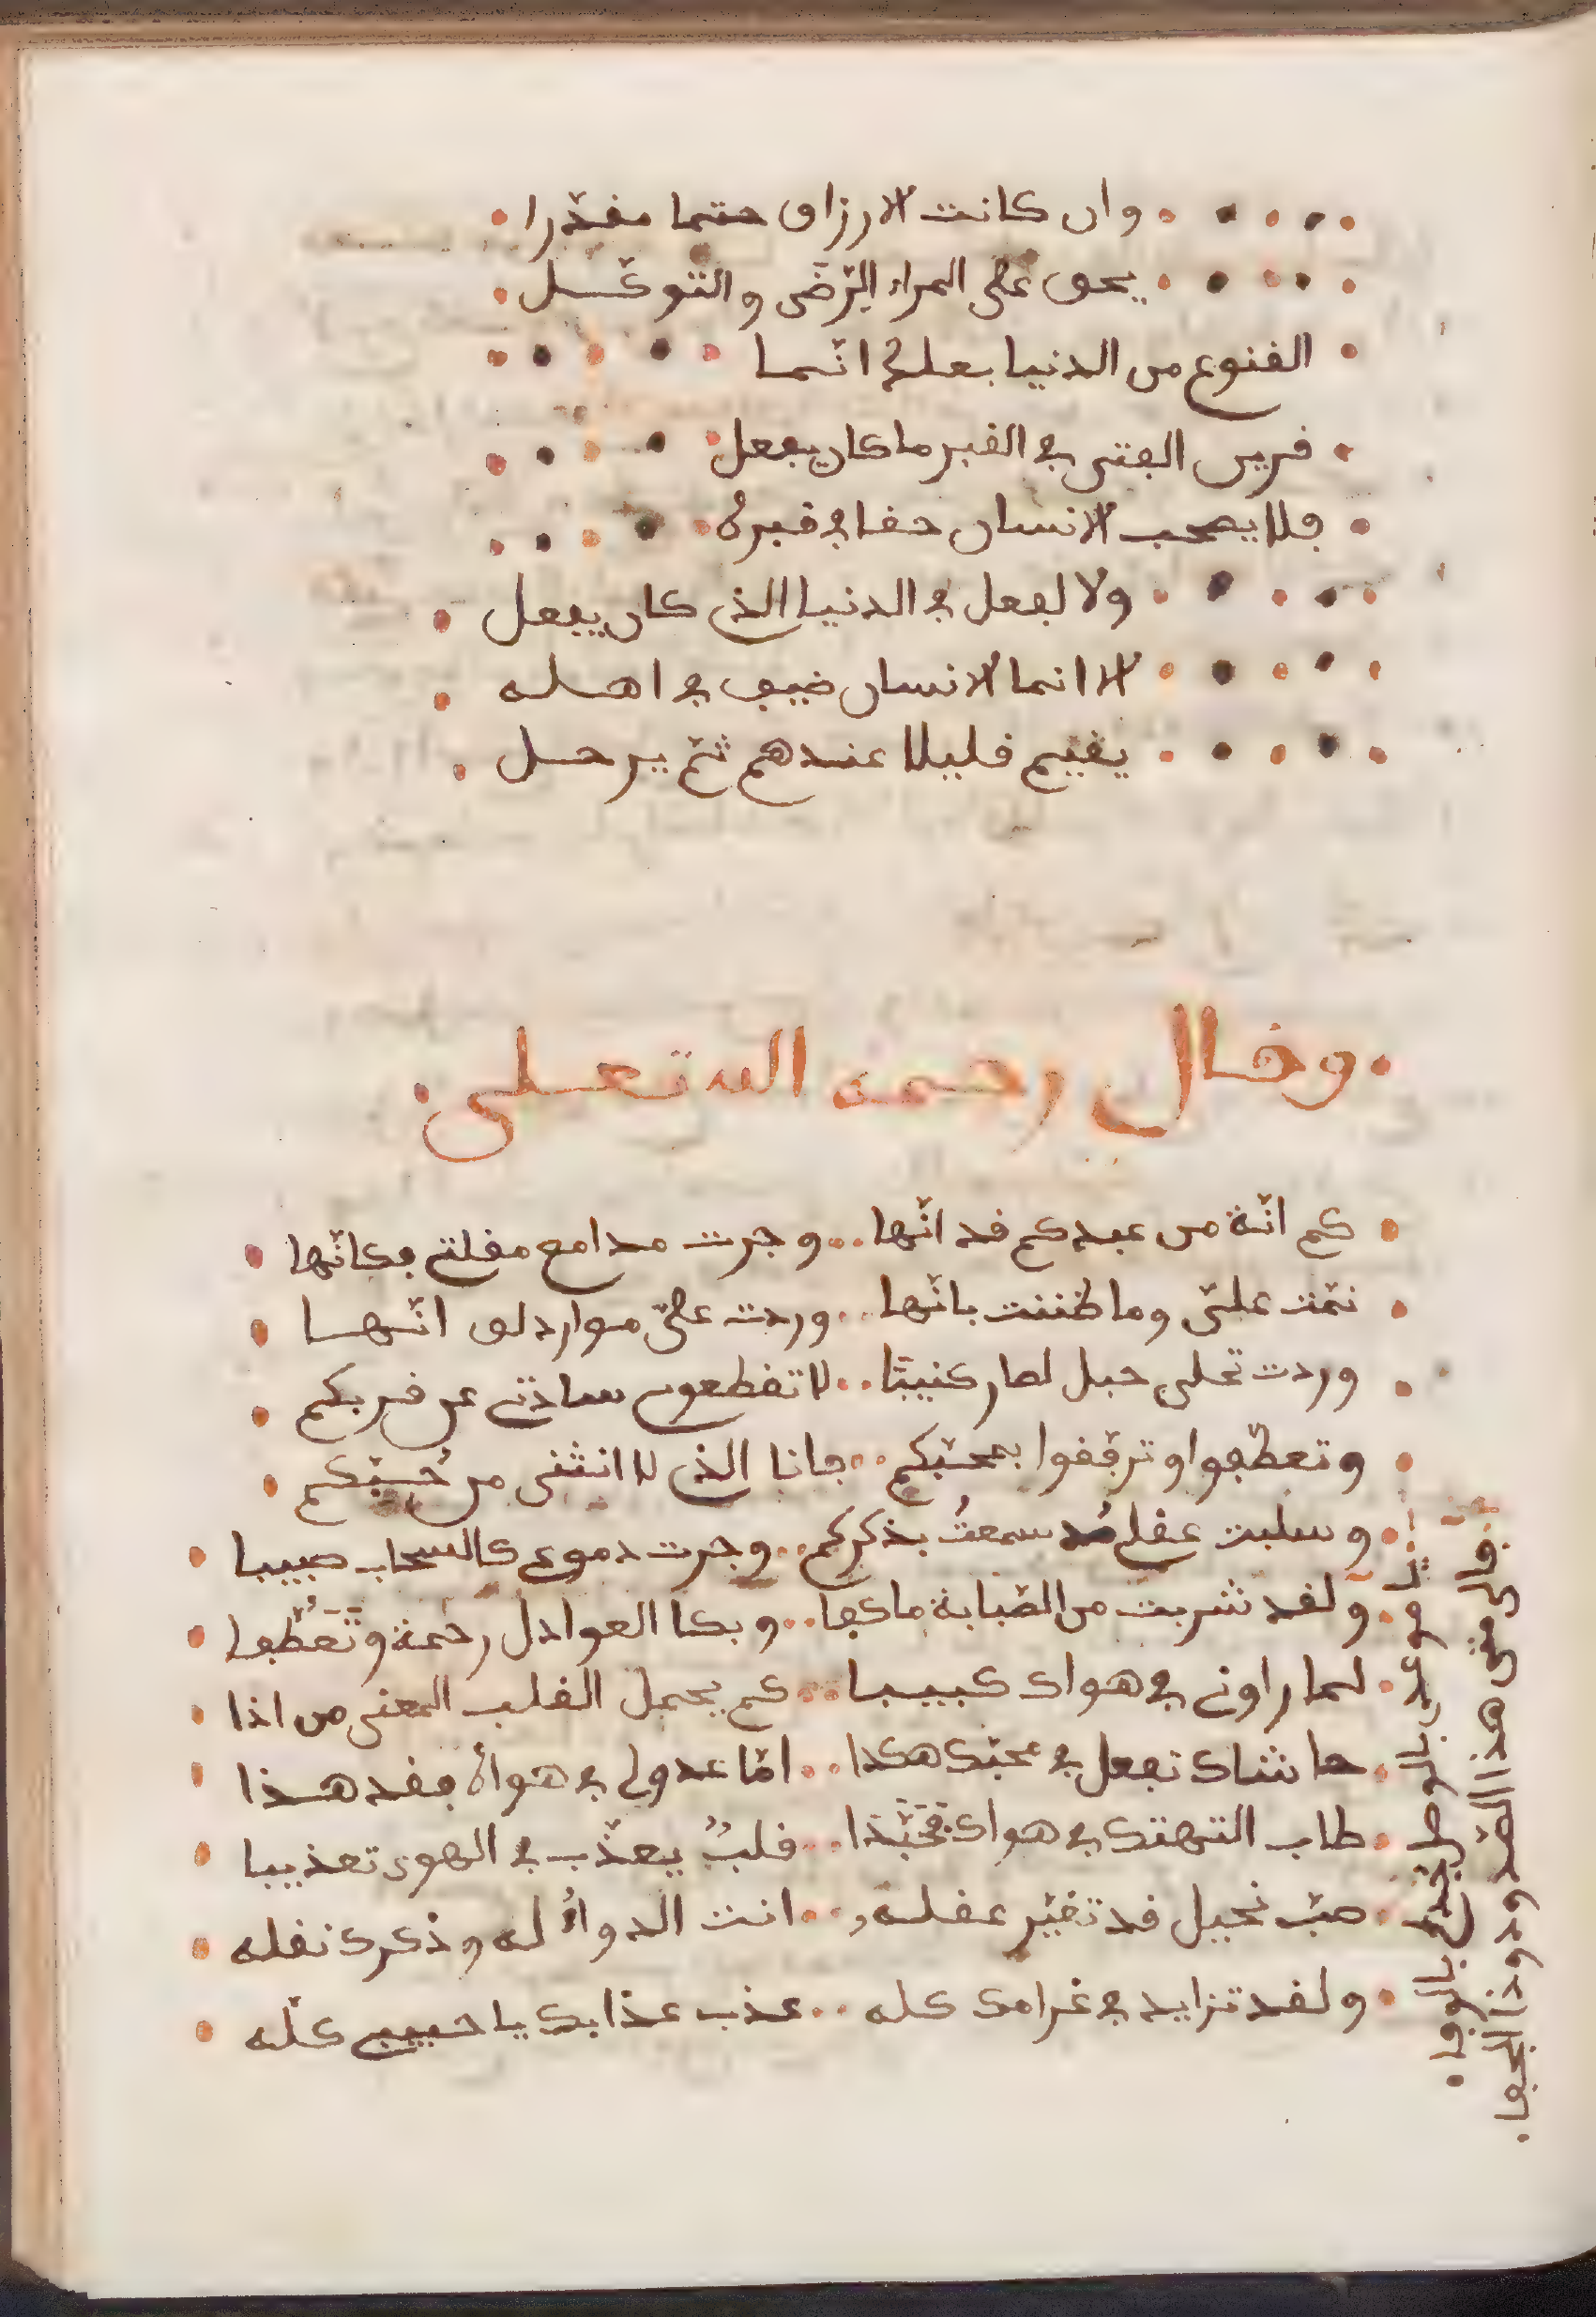 وان كانت الارزاق حتما مقدّرا
يحق على المراء الرّضى والتّوكّل
القنوع من الدنيا بعلم انّما
قرين الفتى في القبر ما كان يفعل
فلا يصحب الانسان حقا في قبره
ولا لفعل في الدنيا الذي كان يفعل
الا انما الانسان ضيف في اهله
يقيم قليلا عندهم ثمّ يرحل
وقال رحمه الله تعلى
كم انّة من عبدكم قد انّها وجرت مدامع مقلتي فكانّها
نمّت عليّ وما ظننت بانّها وردت عليّ موارد لو انّها
وردت على جبل لصار كثيبًا لا تقطعون سادتي عن قربكم
وتعطّفوا وترفّقوا بمحبّكم فانا الذي لا انثنى من حُبّكم
وسلبت عقلي مُد سمعتُ بذكركم وجرت دموعي كالسحاب صبيبا
ولقد شربت من الصّبابة ما كفا وبكا العوادل رحمة وتَعَطُّفا
لما راوني في هواك كبيبا كم يحمل القلب المعنى من اذا
حاشاك تفعل في محبّك هكذا امّا عدولي في هواك فقد هذا
طاب التهتك في هواك فحبّذا قلبٌ يعذّب في الهوى تعذيبا
صبّ نحيل قد تغيّر عقله انت الدواءُ له وذكرك نقله
ولقد تزايد في غرامك كله عذب عذابك يا حبيبي كلّه
قال متى هذا الصّدود وذا الجفا